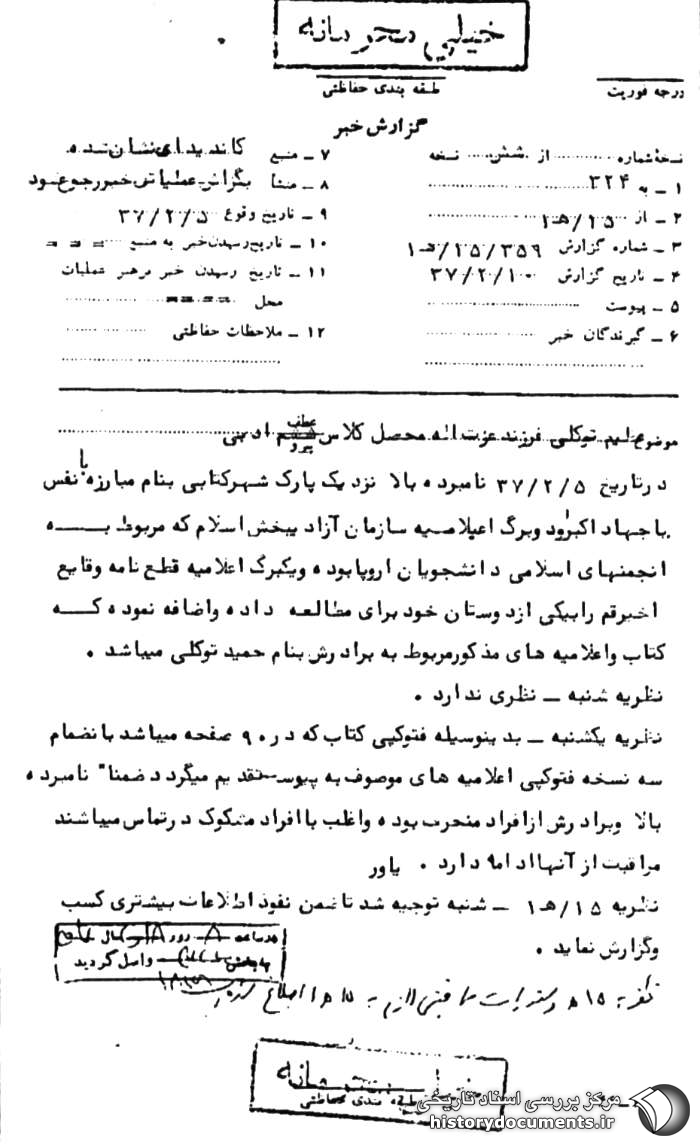 خیلی محرمانه
طبقه بندی حفاظتی
درجه فوریت
گزارش خبر
نسخهٔ شماره .......... از ..شش.. نسخه
۱ ـ به ۳۲۴
۲ ـ از ۱۵/هـ۱
۳ ـ شماره گزارش ۳۵۹/۱۵/هـ۱
۴ ـ تاریخ گزارش ۳۷/۲/۱۰
۵ ـ پیوست
۶ ـ گیرندگان خبر
۷ ـ منبع کاندیدای نشان شده
۸ ـ منشأ
۹ ـ تاریخ وقوع ۳۷/۲/۵
۱۰ ـ تاریخ رسیدن خبر به منبع = = =
۱۱ ـ تاریخ رسیدن خبر برهبر عملیات
محل ====
۱۲ ـ ملاحظات حفاظتی
موضوع علیم توکلی فرزند عزت اله محصل کلاس ادبی
عطف
پیرو
درتاریخ ۳۷/۲/۵ نامبرده بالا نزدیک پارک شهرکتابی بنام مبارزه با نفس
یاجهاد اکبر ودوبرگ اعلامیه سازمان آزاد یبخش اسلام که مربوط بـــه
انجمنهای اسلامی دانشجویان اروپابوده ویکبرگ اعلامیه قطع نامه وقایع
اخیرقم رابیکی ازدوستان خود برای مطالعه داده واضافه نموده کـــه
کتاب واعلامیه های مذکورمربوط به برادرش بنام حمید توکلی میباشد .
نظریه شنبه ـ نظری ندارد .
نظریه یکشنبه ـ بدینوسیله فتوکپی کتاب که در ۹۰ صفحه میباشد بانضمام
سه نسخه فتوکپی اعلامیه های موصوف به پیوست تقدیم میگردد ضمنا" نامبرده
بالا وبرادرش ازافراد منحرف بوده واغلب باافراد مشکوک درتماس میباشند
مراقبت از آنهاادامه دارد . یاور
نظریه ۱۵/هـ۱ ـ شنبه توجیه شد تاضمن نفوذ اطلاعات بیشتری کسب
وگزارش نماید .
در ساعت ۸ روز
به بخش واصل گردید
طبقه بندی حفاظتی
مرکز بررسی اسناد تاریخی
historydocuments.ir